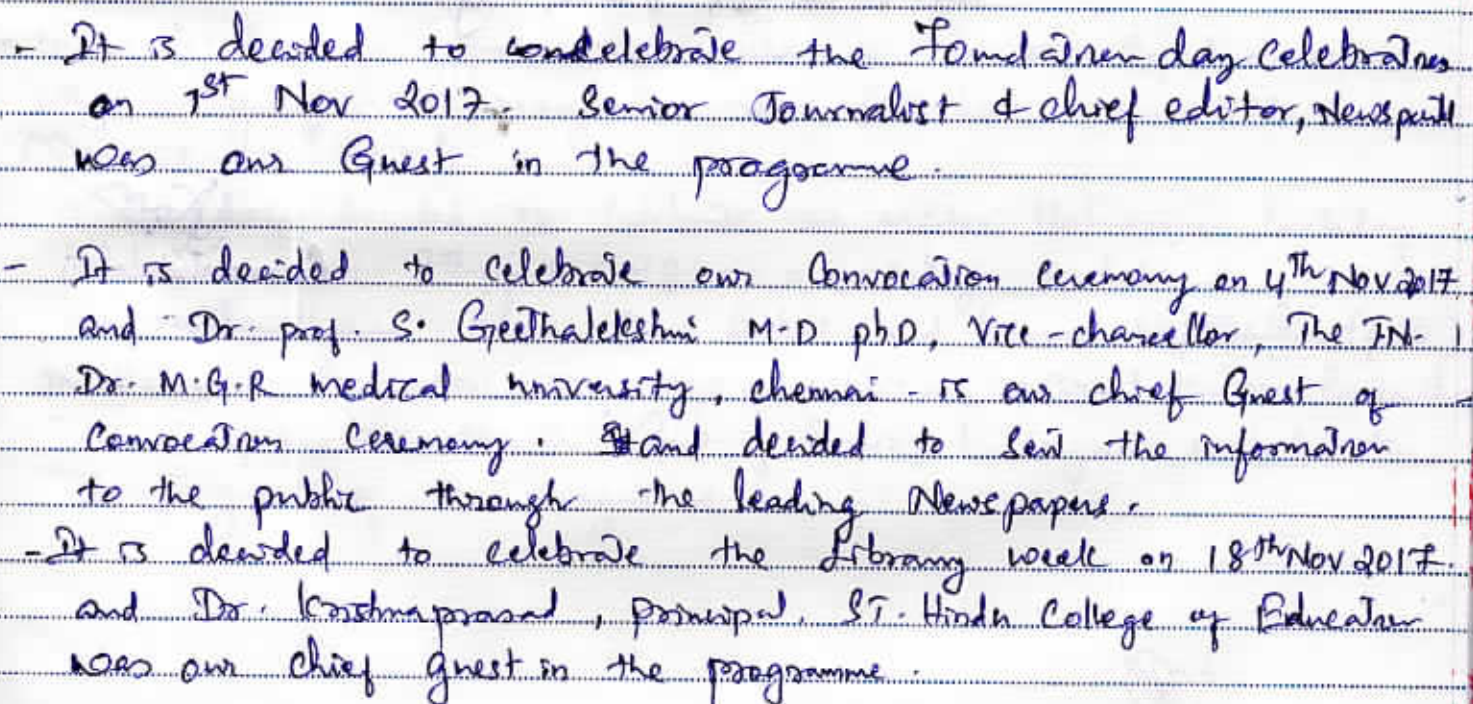 - It is decided to celebrate the Foundation day Celebrations
on 1st Nov 2017. Senior Journalist & chief editor,
was our Guest in the programme.
- It is decided to celebrate our Convocation Ceremony on 4Th Nov 2017
and Dr. prof. S. Geethalekshmi M.D phD, Vice-chancellor, The TN.
Dr. M.G.R medical university, chennai - is our chief Guest of
Convocation Ceremony. and decided to Sent the information
to the public through the leading Newspapers.
- It is decided to celebrate the Library week on 18th Nov 2017.
and Dr. Krishnaprasad, principal, ST. Hindu College of Education
was our chief guest in the programme.